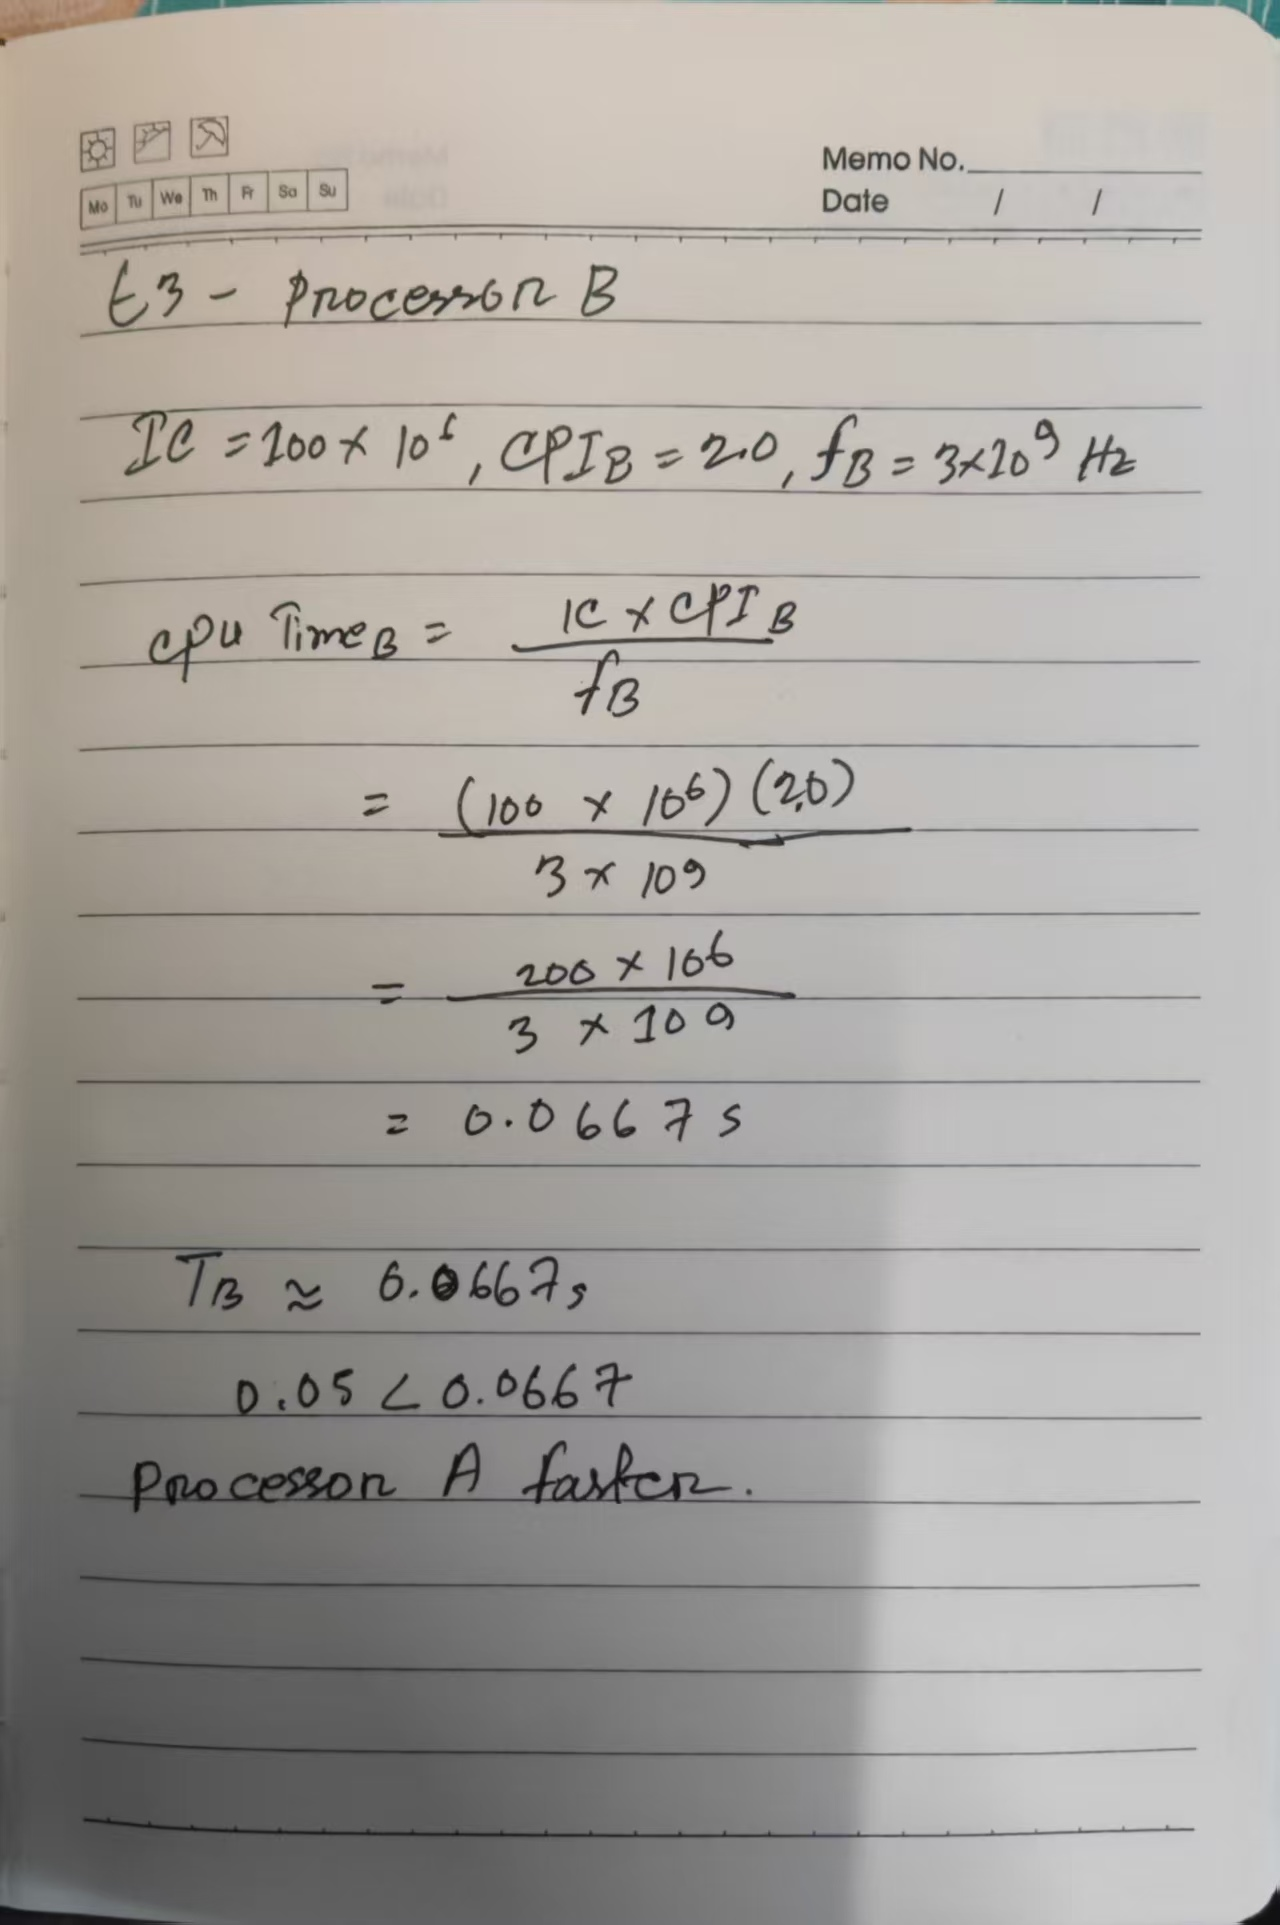 Mo Tu We Th Fr Sa Su
Memo No.
Date / /
E3 - Processor B
IC = 100 × 10⁶, CPI_B = 2.0, f_B = 3×10⁹ Hz
CPU Time_B = IC × CPI_B
f_B
= (100 × 10⁶) (2.0)
3 × 10⁹
= 200 × 10⁶
3 × 10⁹
= 0.0667 s
T_B ≈ 0.0667 s
0.05 < 0.0667
Processor A faster.